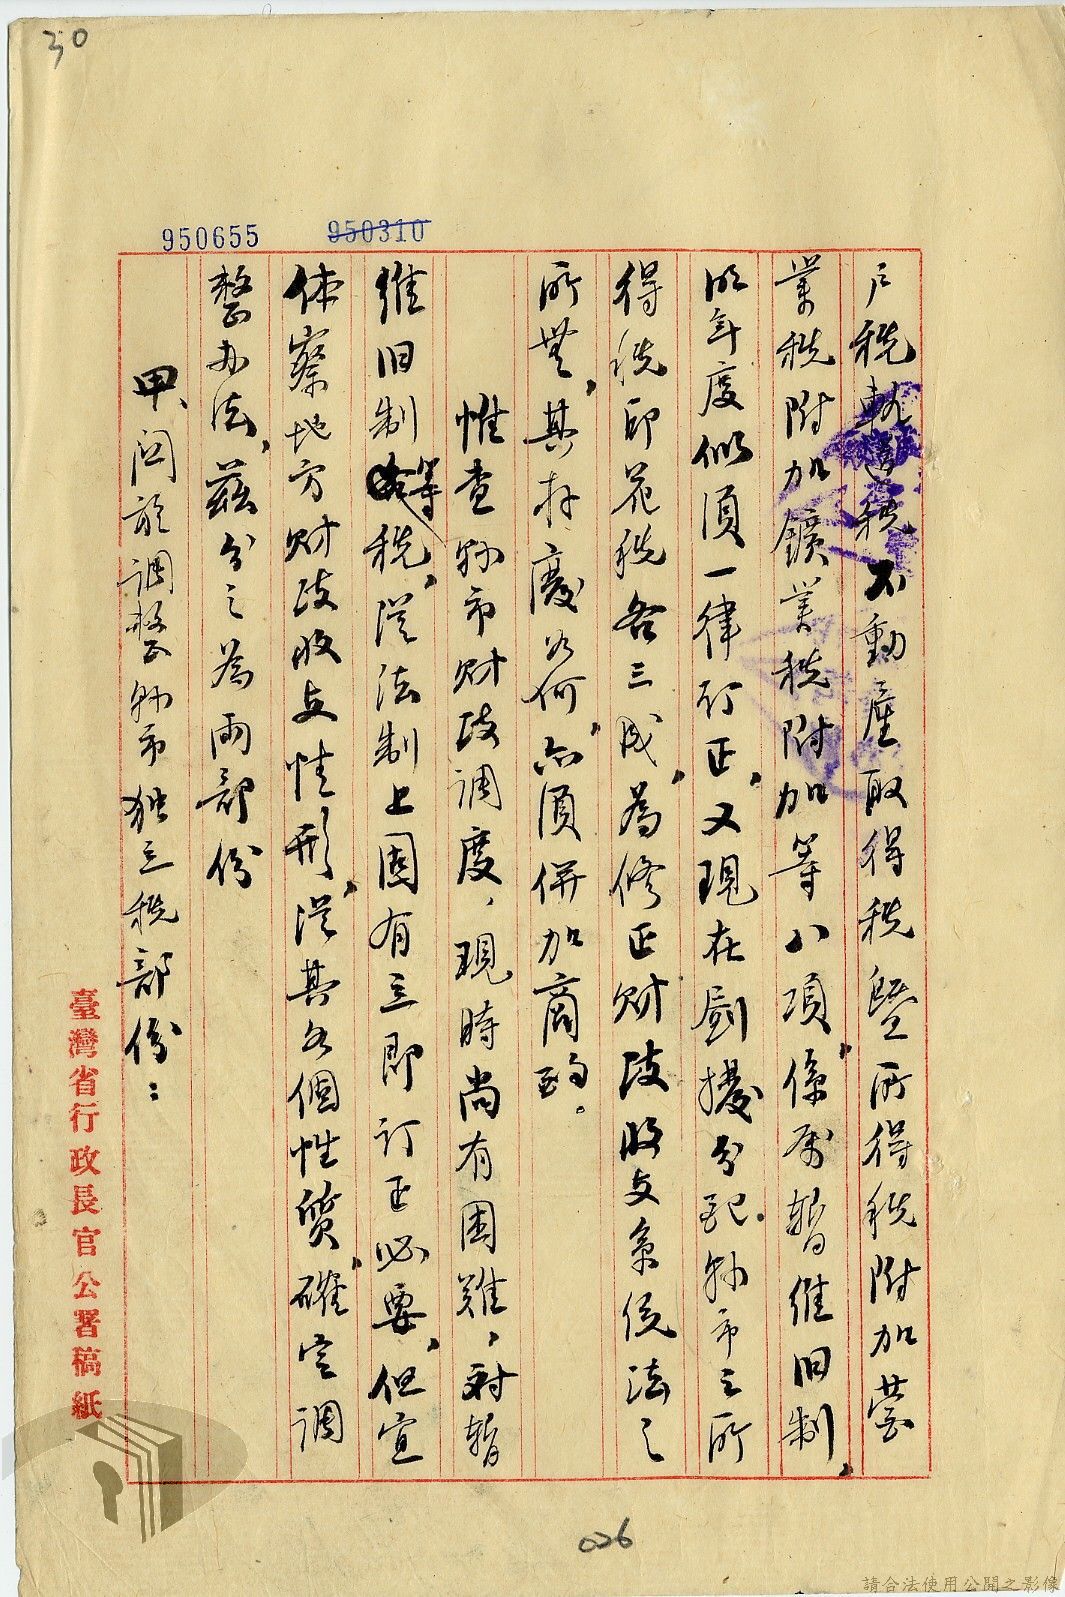 30
950655
950310
戶稅執照稅不動產取得稅暨所得稅附加營
業稅附加鑛業稅附加等八項，係屬暫維旧制，
明年度似須一律訂正，又現在劃撥分配縣市之所
得稅印花稅各三成，為修正財政收支系统法之
所無，其存廢如何，亦須併加商酌。
惟查縣市財政調度，現時尚有困難，對暫
維旧制等稅，從法制上固有立即訂正必要，但宜
体察地方財政收支情形，從其各個性質，確定調
整办法，茲分之為兩部份
甲、関於調整縣市独立稅部份：
臺灣省行政長官公署稿紙
026
請合法使用公開之影像